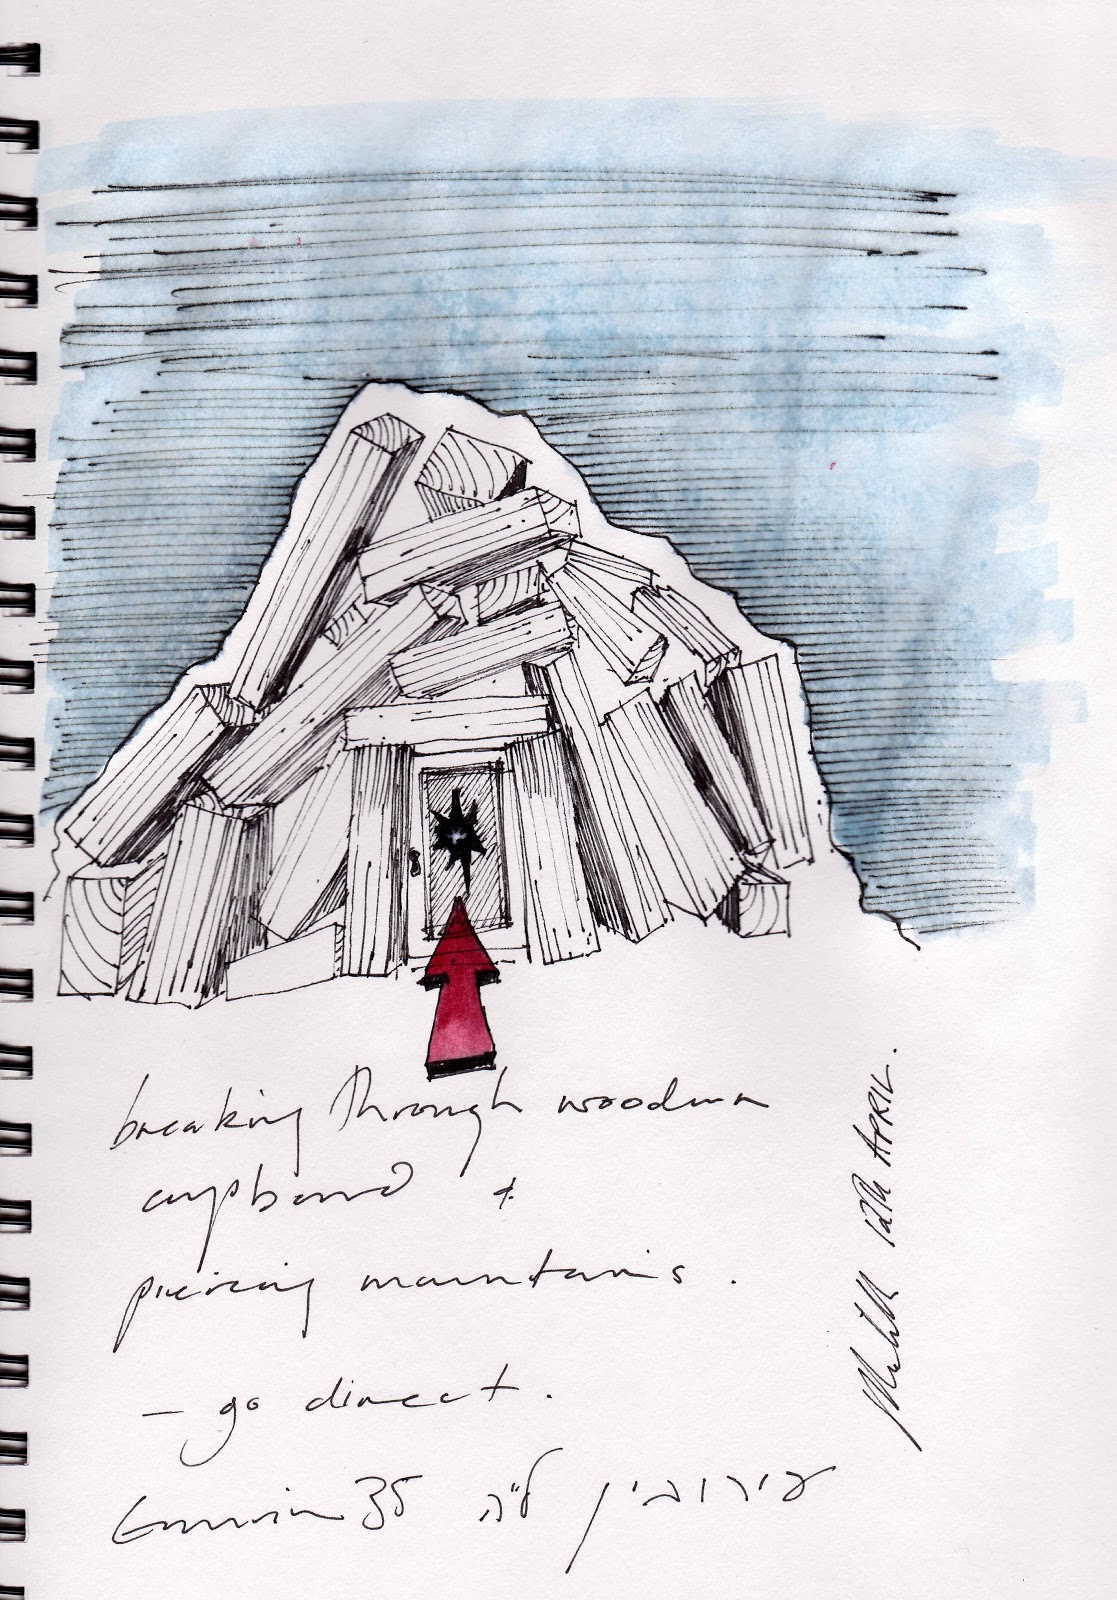 breaking through wooden
cupboard +
piercing mountains.
- go direct.
Eruvin 35 עירובין ל״ה
12th APRIL.